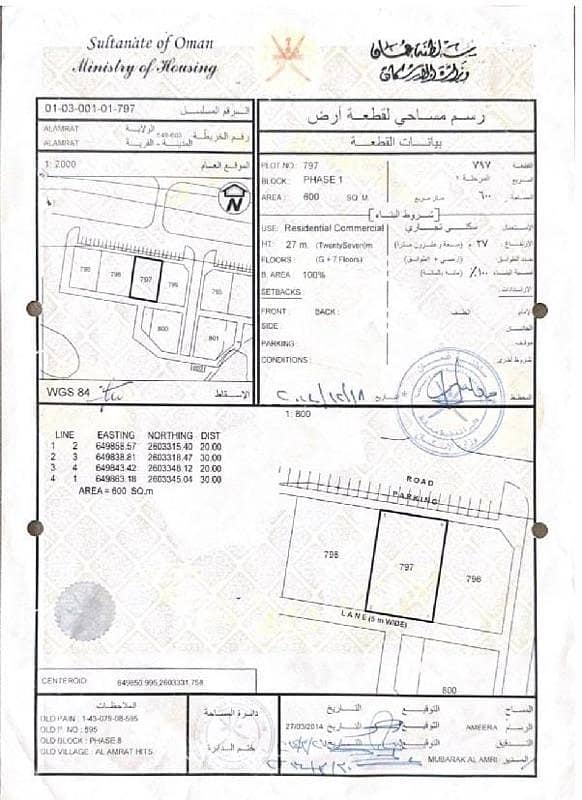 Sultanate of Oman
Ministry of Housing
سلطنة عمان
وزارة الإسكان
01-03-001-01-797 الرقم المسلسل
ALAMRAT الولاية
ALAMRAT المدينة - القرية
رقم الخريطة
1: 2000 الموقع العام
N
798
797
795
800
801
WGS 84 الاسقاط
رسم مساحي لقطعة أرض
بيانات القطعة
PLOT NO : 797 ٧٩٧ القطعة
BLOCK : PHASE 1 المرحلة ١ المربع
AREA : 600 SQ. M. متر مربع ٦٠٠ المساحة
شروط البناء
USE: Residential Commercial سكني تجاري الاستعمال
HT: 27 m. (TwentySeven)m ٢٧ م (سبعة وعشرون مترا) الارتفاع
FLOORS : (G + 7 Floors) عدد الطوابق
B. AREA : 100% ١٠٠٪ (مائة بالمائة) نسبة البناء
SETBACKS: الارتدادات
FRONT : BACK : الخلف الامام
SIDE : الجانب
PARKING : موقف
CONDITIONS : شروط اخرى
المخطط
1: 800
LINE EASTING NORTHING DIST
1 2 649858.57 2603315.40 20.00
2 3 649838.81 2603318.47 30.00
3 4 649843.42 2603348.12 20.00
4 1 649863.18 2603345.04 30.00
AREA = 600 SQ.m
ROAD
PARKING
798
797
796
LANE (5 m WIDE)
800
CENTEROID: 649850.995,2603331.758
الملاحظات
OLD PAIN : 1-43-078-08-595
OLD P. NO : 595
OLD BLOCK : PHASE 8
OLD VILLAGE : AL AMRAT HITS
دائرة المساحة
ختم الدائرة
التاريخ التوقيع المساح
27/03/2014 التاريخ التوقيع AMEERA الرسم
التاريخ التوقيع التدقيق
MUBARAK AL AMRI المدير